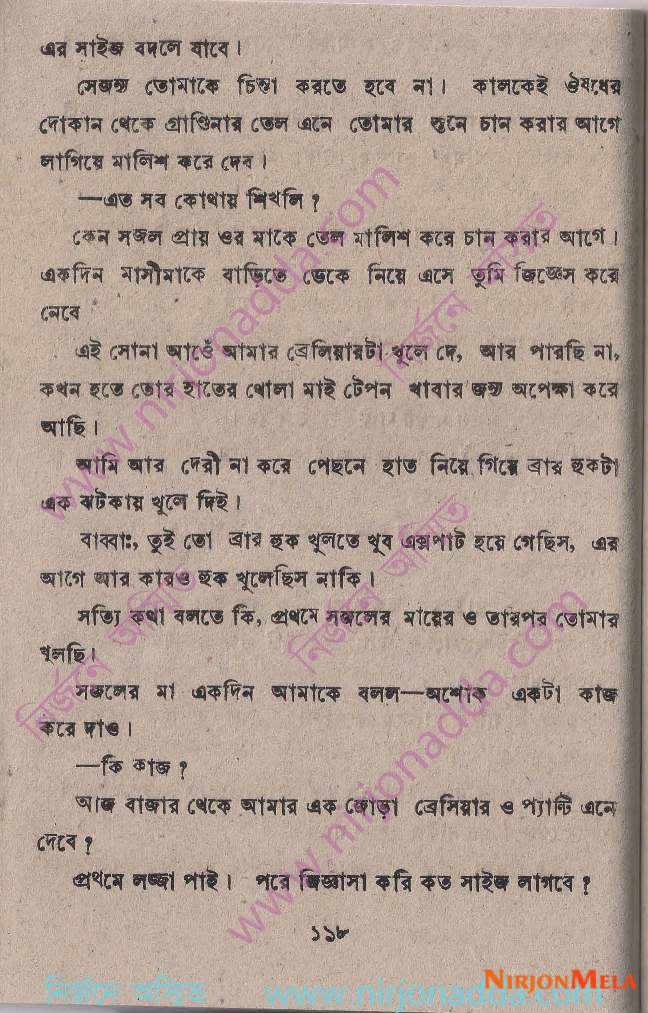 এর সাইজ বদলে যাবে।
সেজন্য তোমাকে চিন্তা করতে হবে না। কালকেই ঔষধের
দোকান থেকে গ্রাণ্ডিনার তেল এনে তোমার স্তনে চান করার আগে
লাগিয়ে মালিশ করে দেব।
—এত সব কোথায় শিখলি?
কেন সজল প্রায় ওর মাকে তেল মালিশ করে চান করার আগে।
একদিন মাসীমাকে বাড়িতে ডেকে নিয়ে এসে তুমি জিজ্ঞেস করে
নেবে
এই সোনা আর্তে আমার ব্রেসিয়ারটা খুলে দে, আর পারছি না,
কখন হতে তোর হাতের খোলা মাই টেপন খাবার জন্য অপেক্ষা করে
আছি।
আমি আর দেরী না করে পেছনে হাত নিয়ে গিয়ে ব্রার হুকটা
এক ঝটকায় খুলে দিই।
বাব্বাঃ, তুই তো ব্রার হুক খুলতে খুব এক্সপার্ট হয়ে গেছিস, এর
আগে আর কারও হুক খুলেছিস নাকি।
সত্যি কথা বলতে কি, প্রথমে সজলের মায়ের ও তারপর তোমার
খুলছি।
সজলের মা একদিন আমাকে বলল—অশোক একটা কাজ
করে দাও।
—কি কাজ?
আজ বাজার থেকে আমার এক জোড়া ব্রেসিয়ার ও প্যান্টি এনে
দেবে?
প্রথমে লজ্জা পাই। পরে জিজ্ঞাসা করি কত সাইজ লাগবে?
১১৮
www.nirjonadda.com
নির্জনে অমিত
নির্জনে অমিত
নির্জনে অমিত
www.nirjonadda.com
নির্জনে অমিত www.nirjonadda.com
NIRJONMELA